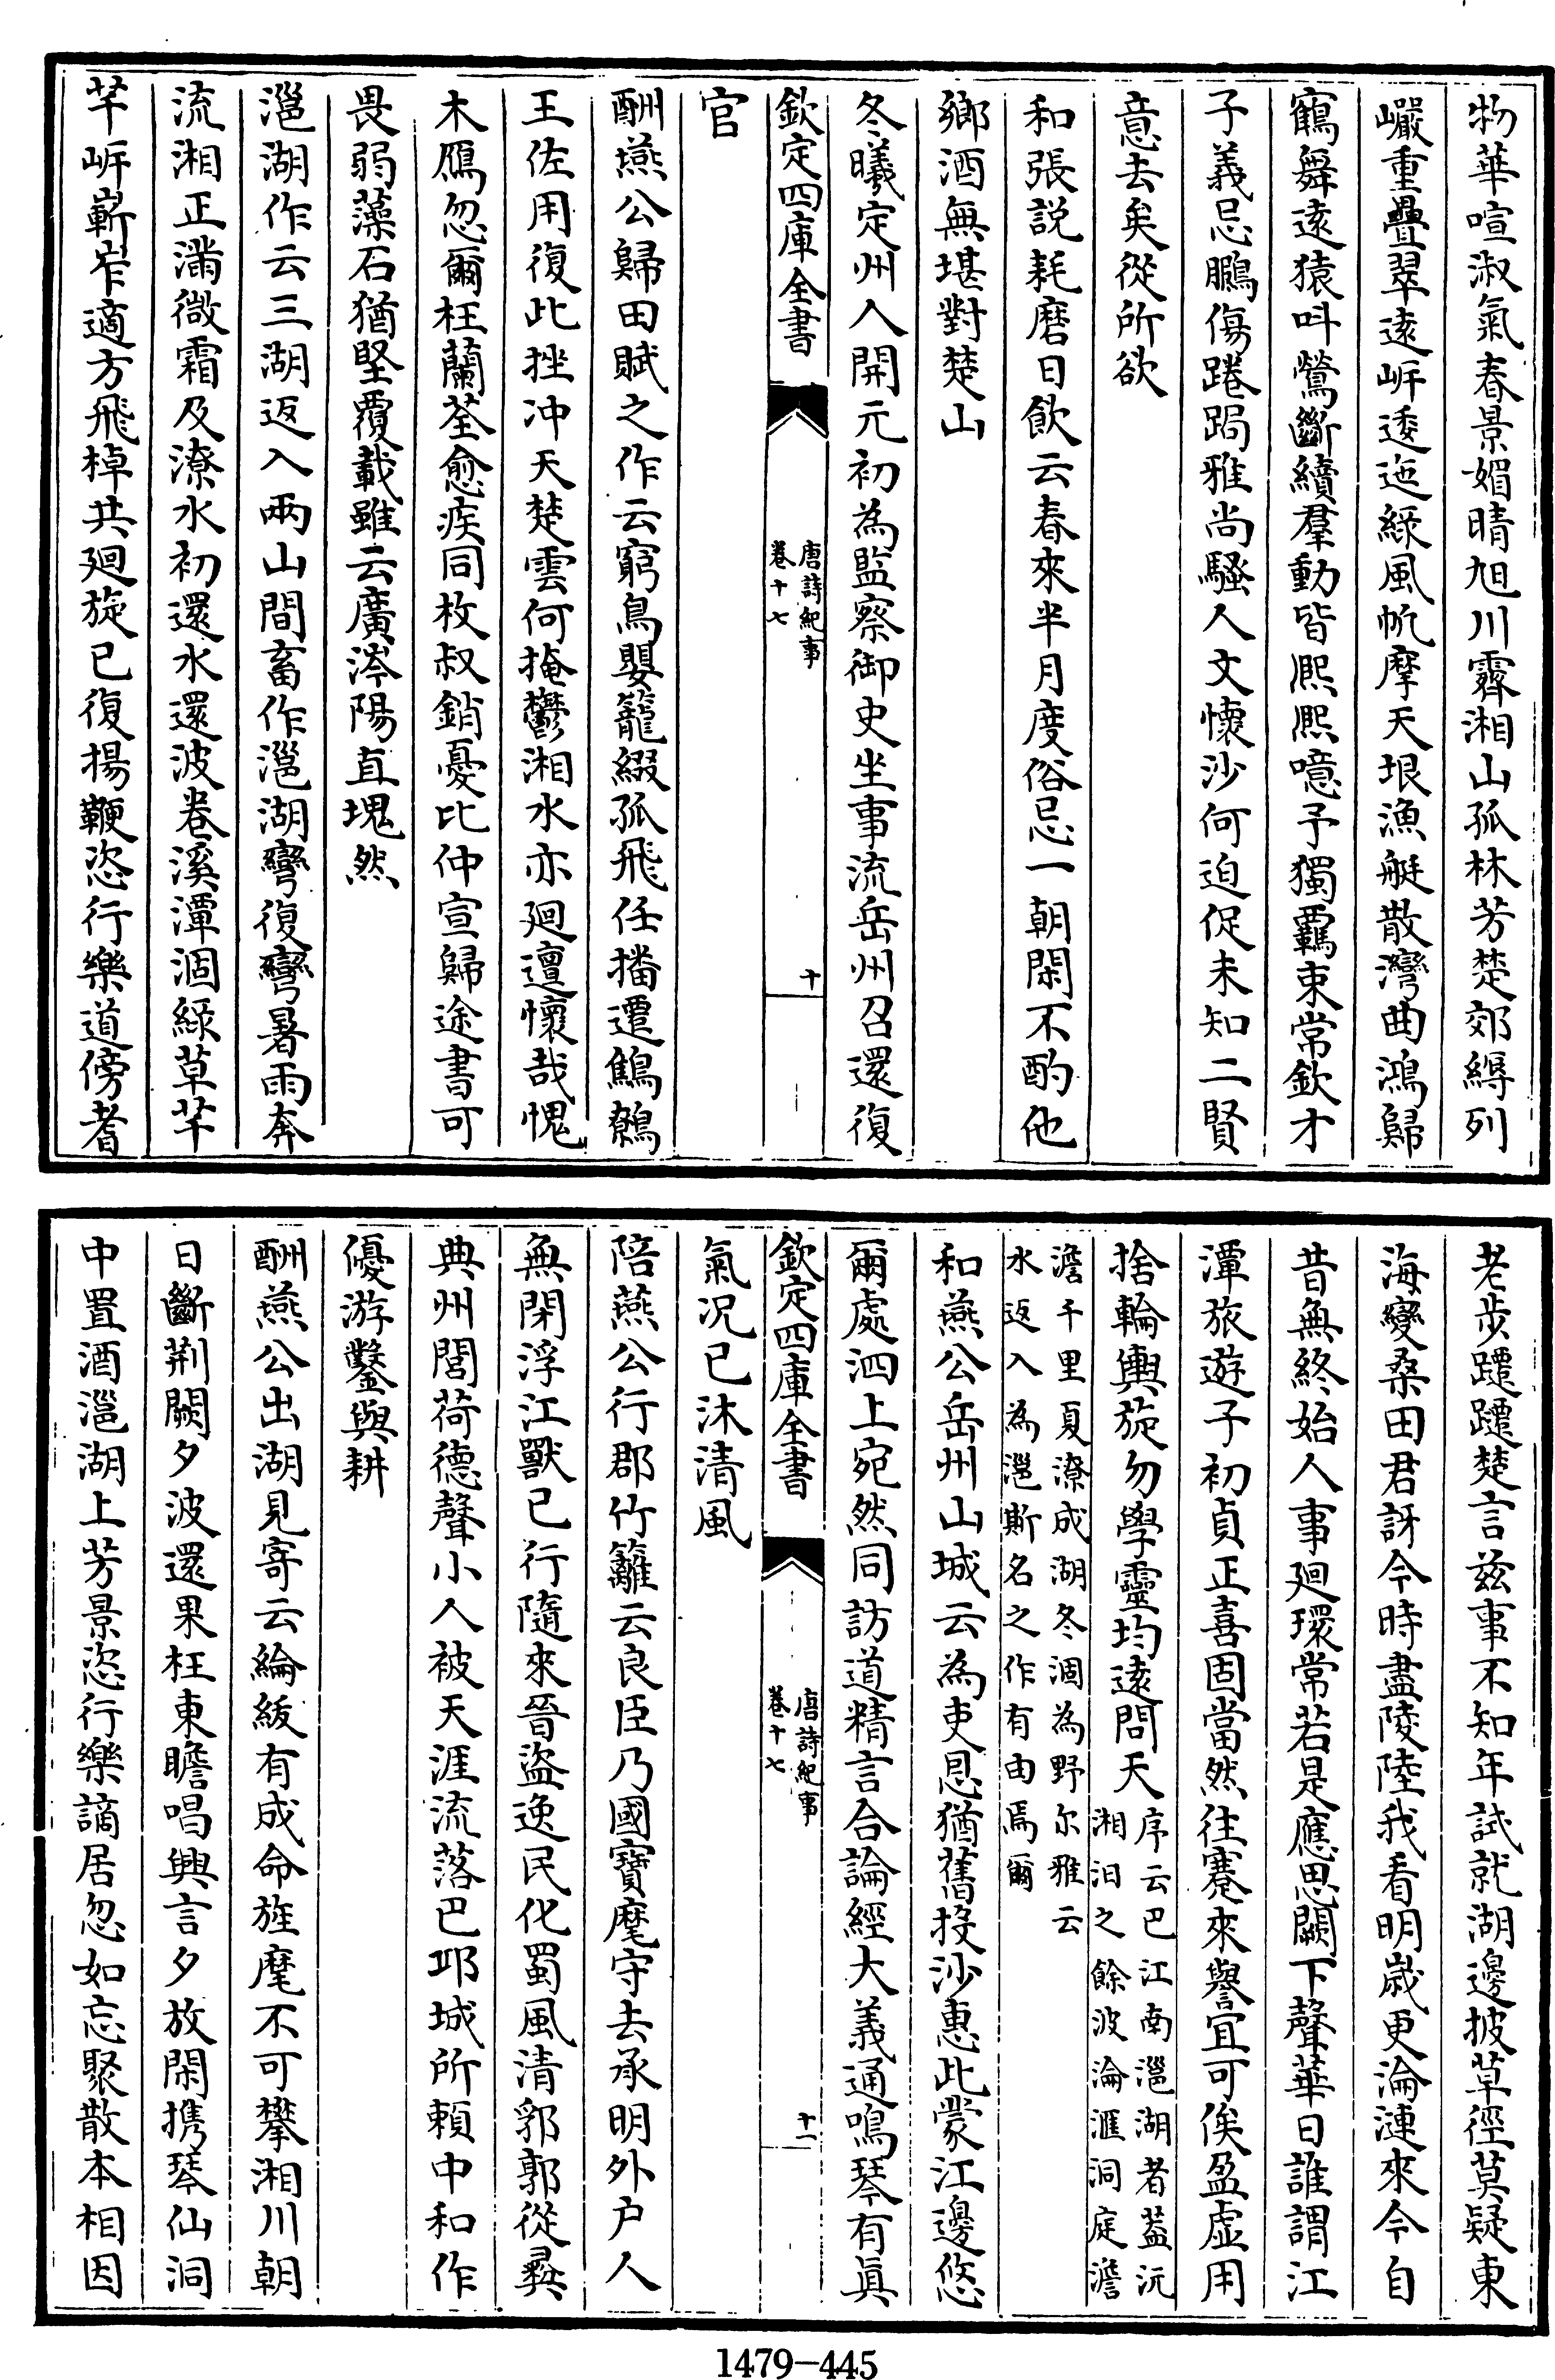 物華喧淑氣春景媚晴旭川霽湘山孤林芳楚郊縟列
巘重疊翠遠岍逶迤綠風帆摩天垠漁艇散灣曲鴻歸
鶴舞遠猿呌鶯斷續羣動皆熈熈噫予獨羇束常欽才
子義忌鵩傷踡跼雅尚騷人文懷沙何迫促未知二賢
意去矣從所欲
和張説耗磨日飲云春來半月度俗忌一朝閑不酌他
鄉酒無堪對楚山
冬曦定州人開元初為監察御史坐事流岳州召還復
欽定四庫全書
唐詩紀事
卷十七
十
官
酬燕公歸田賦之作云窮鳥嬰籠綴孤飛任播遷鷦鷯
王佐用復此挫冲天楚雲何掩鬱湘水亦廻邅懷哉愧
木鴈忽爾枉蘭荃愈疾同枚叔銷憂比仲宣歸途書可
畏弱藻石猶堅覆載雖云廣涔陽直塊然
㴩湖作云三湖返入兩山間畜作㴩湖彎復彎暑雨奔
流湘正滿微霜及潦水初還水還波卷溪潭涸綠草芊
芊岍嶄岝適方飛棹共廻旋已復揚鞭恣行樂道傍耆
老步躚躚楚言兹事不知年試就湖邊披草徑莫疑東
海變桑田君訝今時盡陵陸我看明嵗更淪漣來今自
昔無終始人事廻環常若是應思闕下聲華日誰謂江
潭旅遊子初貞正喜固當然往蹇來譽宜可俟盈虛用
捨輪輿旋勿學靈均遠問天
序云巴江南㴩湖者葢沅
湘汨之餘波淪滙洞庭澹
澹千里夏潦成湖冬涸為野尔雅云
水返入為㴩斯名之作有由焉爾
和燕公岳州山城云為吏恩猶舊投沙惠此蒙江邊悠
爾處泗上宛然同訪道精言合論經大義通鳴琴有眞
欽定四庫全書
唐詩紀事
卷十七
十一
氣況已沐清風
陪燕公行郡竹籬云良臣乃國寶麾守去承明外户人
無閉浮江獸已行隨來晉盗逸民化蜀風清郛郭從彛
典州閭荷德聲小人被天涯流落巴邛城所賴中和作
優游鑿與耕
酬燕公出湖見寄云綸紱有成命旌麾不可攀湘川朝
日斷荆闕夕波還果枉東瞻唱興言夕放閑携琴仙洞
中置酒㴩湖上芳景恣行樂謫居忽如忘聚散本相因
1479-445